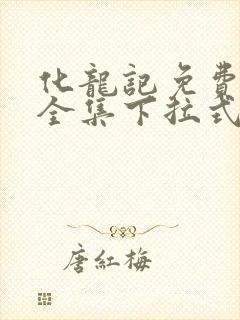 化龍記免費
全集下拉式
唐紅梅